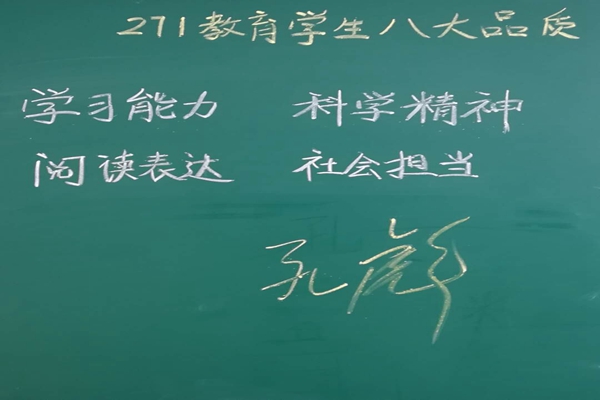 271教育学生八大品质
学习能力 科学精神
阅读表达 社会担当
孔彪